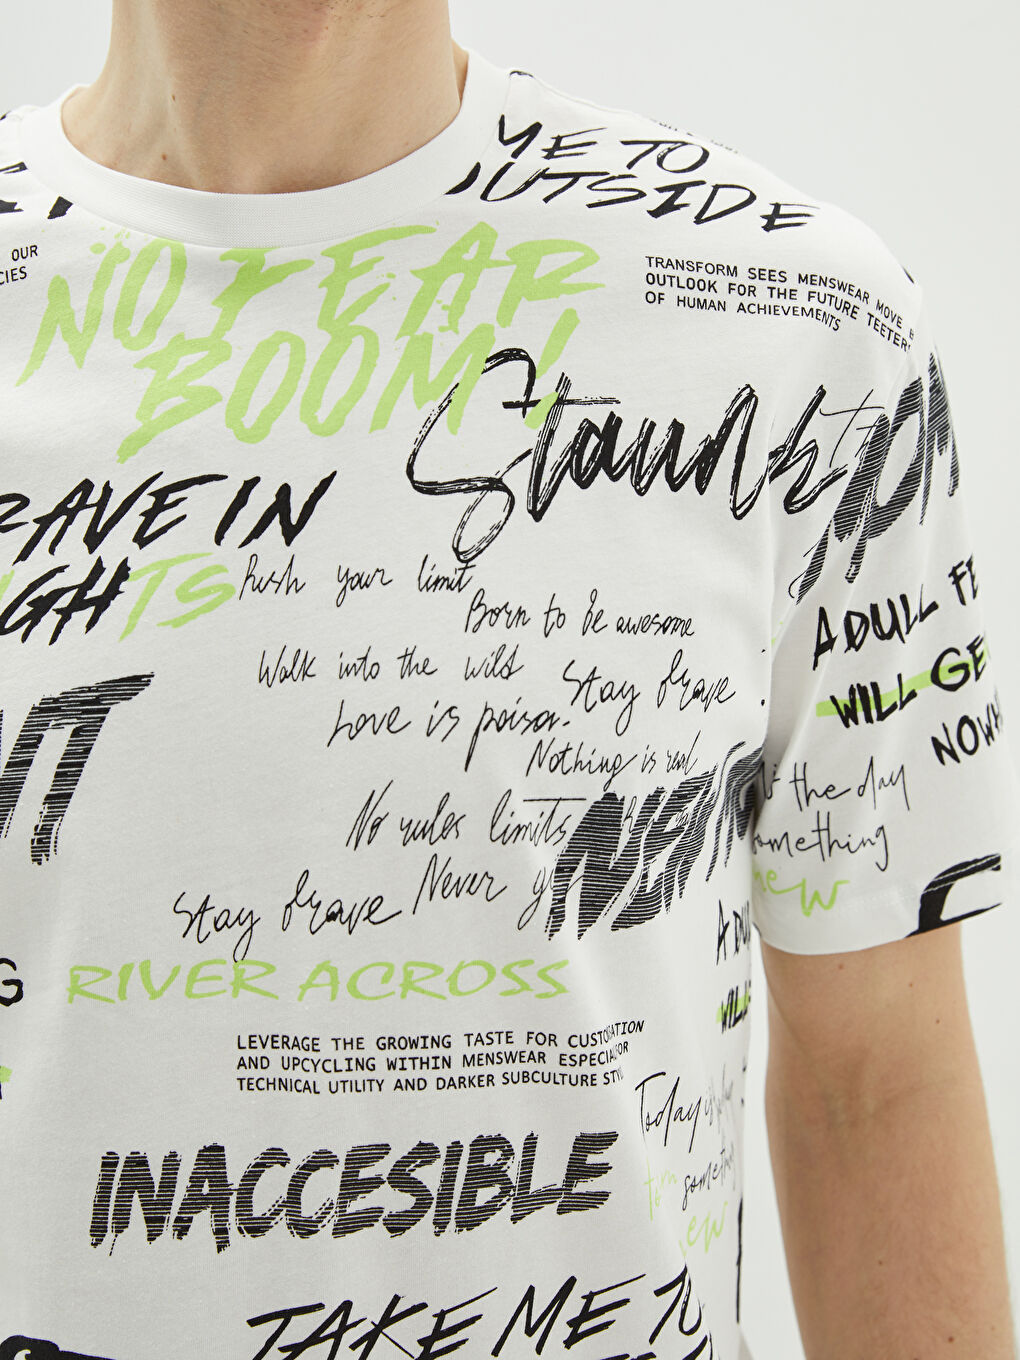 ME TO
OUTSIDE
OUR
CIES
NO FEAR
BOOM!
TRANSFORM SEES MENSWEAR MOVE B
OUTLOOK FOR THE FUTURE TEETERS
OF HUMAN ACHIEVEMENTS
RAVE IN
GHTS
Push your limit
Born to be awesome
Walk into the wild
Stay brave
Love is poison
Nothing is real
No rules limits
Never g
Stay brave
A DULL FE
WILL GE
NOWH
the day
something
new
A DUL
WILL
RIVER ACROSS
LEVERAGE THE GROWING TASTE FOR CUSTOMISATION
AND UPCYCLING WITHIN MENSWEAR ESPECIA FOR
TECHNICAL UTILITY AND DARKER SUBCULTURE STYL
Today is
someting
ew
INACCESIBLE
TAKE ME TO